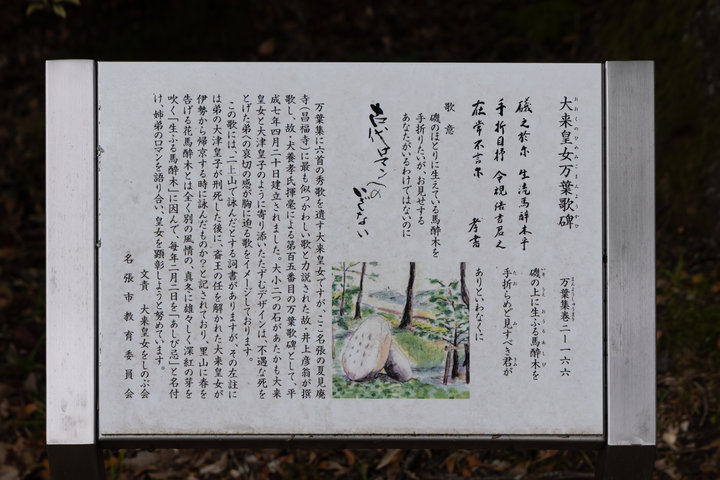 大来皇女万葉歌碑
おおくのひめみこまんようかひ
万葉集巻二―一六六
磯之於尓 生流馬酔木乎
手折目杼 令視倍吉君之
在常不言尓 孝書
磯の上に生ふる馬酔木を
手折らめど見すべき君が
ありといわなくに
歌 意
磯のほとりに生えている馬酔木を
手折りたいが、お見せする
あなたがいるわけではないのに
古代ロマンへの
いざない
万葉集に六首の秀歌を遺す大来皇女ですが、ここ名張の夏見廃
寺(昌福寺)に最も似つかわしい歌と力説された故・井上彦翁が撰
歌し、故・犬養孝氏揮毫による第百五番目の万葉歌碑として、平
成七年四月二十日建立されました。大小二つの石があたかも大来
皇女と大津皇子のように寄り添いたたずむデザインは、不遇な死を
とげた弟への哀切の感が胸に迫る歌をイメージしております。
この歌には、二上山で詠んだとする詞書がありますが、その左註に
は弟の大津皇子が刑死した後に、斎王の任を解かれた大来皇女が
伊勢から帰京する時に詠んだものか?と記されており、里山に春を
告げる花馬酔木とは全く別の風情の、真冬に雄々しく深紅の芽を
吹く「生ふる馬酔木」に因んで、毎年一月二日を「あしび忌」と名付
け、姉弟のロマンを語り合い、皇女を顕彰しようと努めています。
文責 大来皇女をしのぶ会
名張市教育委員会